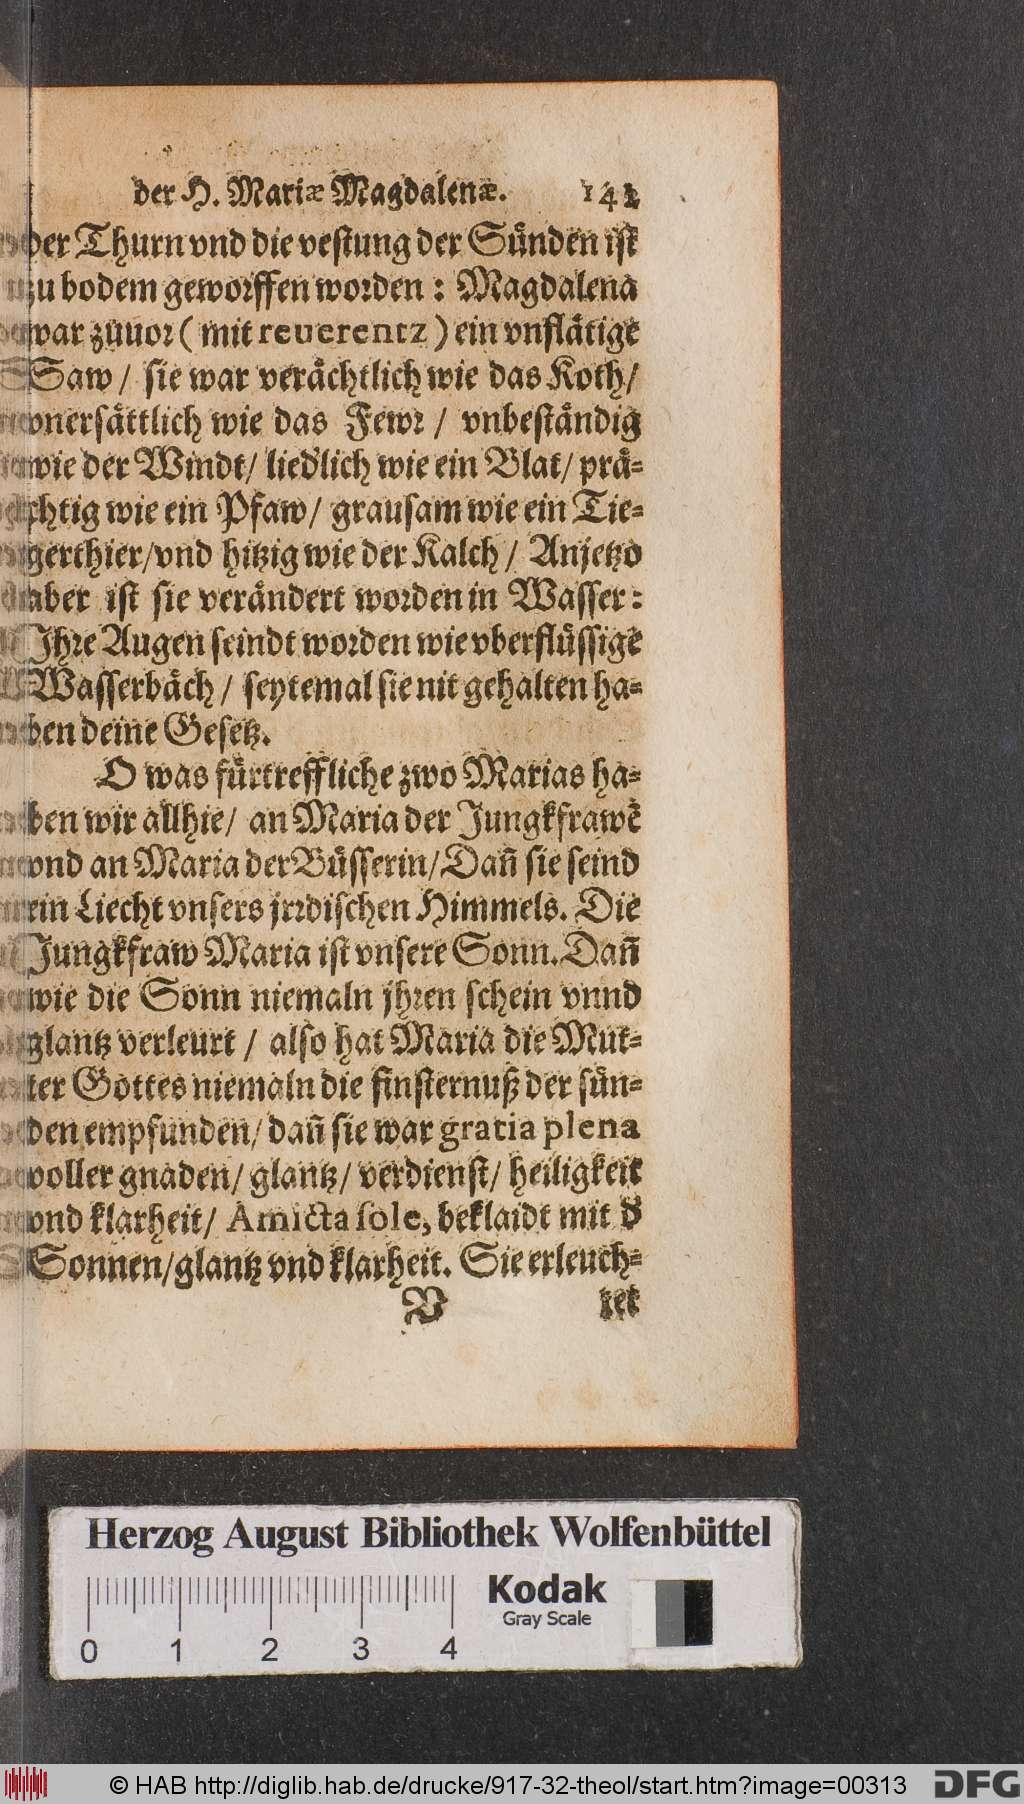 der H. Mariæ Magdalenæ. 141
der Thurn vnd die vestung der Sünden ist
zu bodem geworffen worden : Magdalena
war zuuor ( mit reuerentz ) ein vnflätige
Saw / sie war verächtlich wie das Koth/
vnersättlich wie das Fewr / vnbeständig
wie der Windt/ liedlich wie ein Blat/ prä-
chtig wie ein Pfaw/ grausam wie ein Tie-
gerthier/vnd hitzig wie der Kalch / Anjetzo
aber ist sie verändert worden in Wasser:
Ihre Augen seindt worden wie vberflüssige
Wasserbäch / seytemal sie nit gehalten ha-
ben deine Gesetz.
O was fürtreffliche zwo Marias ha-
ben wir allhie/ an Maria der Jungkfrawẽ
vnd an Maria der Büsserin/Dañ sie seind
ein Liecht vnsers jrrdischen Himmels. Die
Jungkfraw Maria ist vnsere Sonn. Dañ
wie die Sonn niemaln jhren schein vnnd
glantz verleurt / also hat Maria die Mut-
ter Gottes niemaln die finsternuß der sün-
den empfunden/ dañ sie war gratia plena
voller gnaden/ glantz/ verdienst/ heiligkeit
vnd klarheit/ Amicta sole, beklaidt mit d̃
Sonnen/glantz vnd klarheit. Sie erleuch-
V tet
Herzog August Bibliothek Wolfenbüttel
Kodak
Gray Scale
0 1 2 3 4
© HAB http://diglib.hab.de/drucke/917-32-theol/start.htm?image=00313
DFG